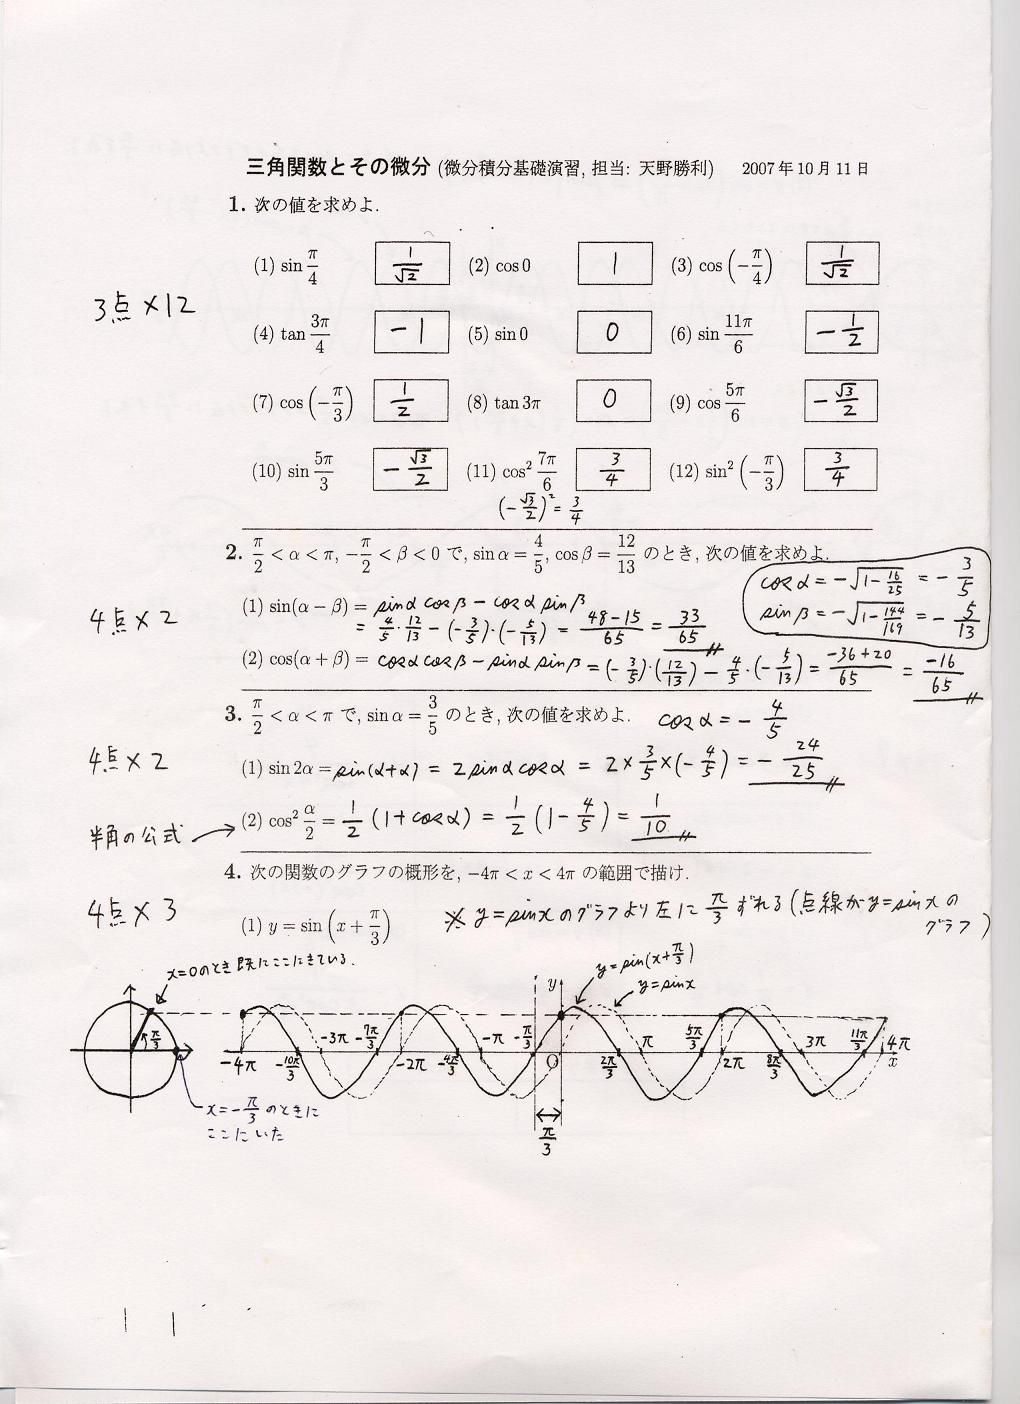 三角関数とその微分 (微分積分基礎演習, 担当: 天野勝利) 2007年10月11日
1. 次の値を求めよ.
(1) sin π/4 1/√2 (2) cos 0 1 (3) cos(−π/4) 1/√2
3点×12
(4) tan 3π/4 −1 (5) sin 0 0 (6) sin 11π/6 −1/2
(7) cos(−π/3) 1/2 (8) tan 3π 0 (9) cos 5π/6 −√3/2
(10) sin 5π/3 −√3/2 (11) cos² 7π/6 3/4 (12) sin²(−π/3) 3/4
(−√3/2)² = 3/4
2. π/2 < α < π, −π/2 < β < 0 で, sin α = 4/5, cos β = 12/13 のとき, 次の値を求めよ.
cosα = −√(1−16/25) = −3/5
sinβ = −√(1−144/169) = −5/13
4点×2
(1) sin(α − β) = sinα cosβ − cosα sinβ
= 4/5・12/13 − (−3/5)・(−5/13) = (48−15)/65 = 33/65
(2) cos(α + β) = cosα cosβ − sinα sinβ = (−3/5)・(12/13) − 4/5・(−5/13) = (−36+20)/65 = −16/65
3. π/2 < α < π で, sin α = 3/5 のとき, 次の値を求めよ. cosα = −4/5
4点×2
(1) sin 2α = sin(α+α) = 2sinα cosα = 2×3/5×(−4/5) = −24/25
半角の公式
(2) cos² α/2 = 1/2 (1+cosα) = 1/2 (1−4/5) = 1/10
4. 次の関数のグラフの概形を, −4π < x < 4π の範囲で描け.
4点×3
(1) y = sin(x + π/3) ※ y=sinxのグラフより左に π/3 ずれる(点線がy=sinxの
グラフ)
x=0のとき既にここにきている.
y=sin(x+π/3)
y=sinx
y
π/3
−4π −10π/3 −3π −7π/3 −2π −4π/3 −π −π/3 O 2π/3 π 5π/3 2π 8π/3 3π 11π/3 4π
x
x=−π/3 のときに
ここにいた
π/3